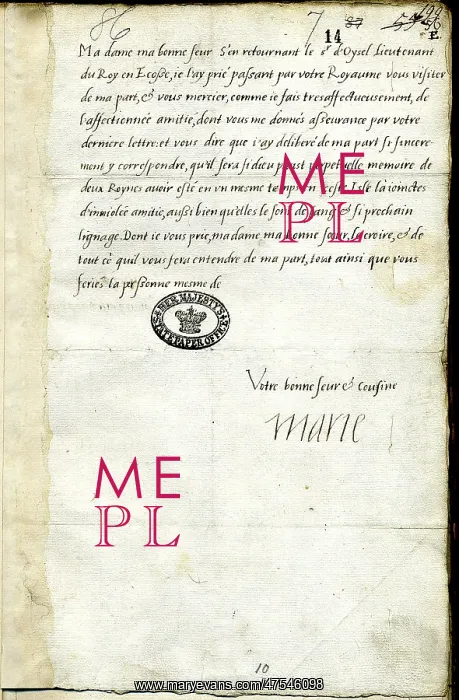 86 7 87
14 E
Ma dame ma bonne seur S'en retournant le sr d'Oysel Lieutenant
du Roy en Ecosse, ie l'ay prié passant par votre Royaume vous visiter
de ma part, & vous mercier, comme ie fais tresaffectueusement, de
l'affectionnée amitie, dont vous me donnés asseurance par votre
derniere lettre: et vous dire que i'ay deliberé de ma part si sincere-
ment y correspondre, qu'il sera si dieu plaist perpetuelle memoire de
deux Roynes auoir esté en un mesme temps en ceste Isle la ioinctes
d'inuiolée amitié, aussi bien qu'elles le sont de sang & si prochain
lignage. Dont ie vous prie, ma dame, ma bonne seur, le croire, & de
tout ce qu'il vous fera entendre de ma part, tout ainsi que vous
feriés la personne mesme de
HER MAJESTY'S
STATE PAPER OFFICE
Votre bonne seur & cousine
Marie
ME
PL
ME
PL
10
www.maryevans.com/47546098